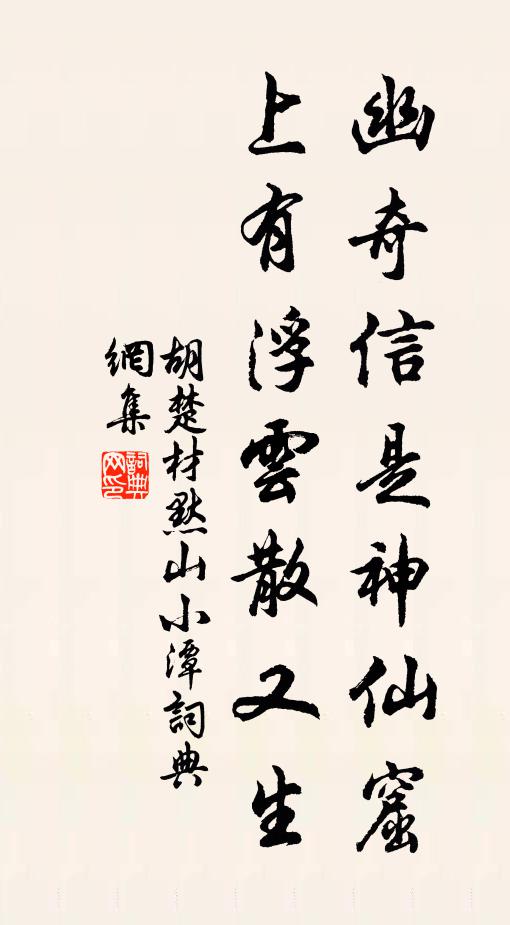 幽奇信是神仙窟
上有浮雲散又生
胡楚材㸃山小潭詞典
網集
詞典網印